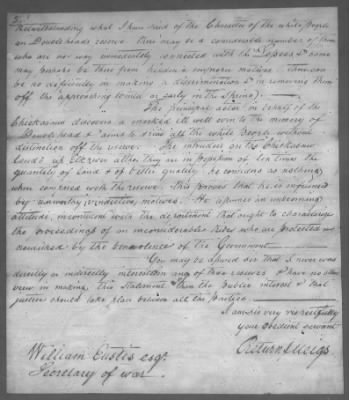 Notwithstanding what I have said of the Character of the white people
on Doublehead's reserve there may be a considerable number of them
who are no way immediately connected with the Lessees & some
may perhaps be there from hidden & improper motives. There can
be no difficulty in making a discrimination in removing them
off the approaching winter or early in the Spring).
The principal actor in behalf of the
Chickasaws discovers a marked ill will even to the memory of
Doublehead & aims to drive all the white people without
distinction off the reserve. The intruders on the Chickasaw
Lands up Elk river altho they are in possession of ten times the
quantity of land & of better quality he considers as nothing
when compared with the reserve. This proves that he is influenced
by unworthy vindictive motives. He assumes an unbecoming
attitude, inconsistent with the deportment that ought to characterize
the proceedings of an inconsiderable tribe who are protected and
nourished by the benevolence of the Government
You may be assured Sir that I never was
directly or indirectly interested in any of those reserves & have no other
view in making this statement than the public interest & that
justice should take place between all the parties
I am Sir very respectfully
your obedient servant
Return J. Meigs
William Eustis esqr.
Secretary of war.